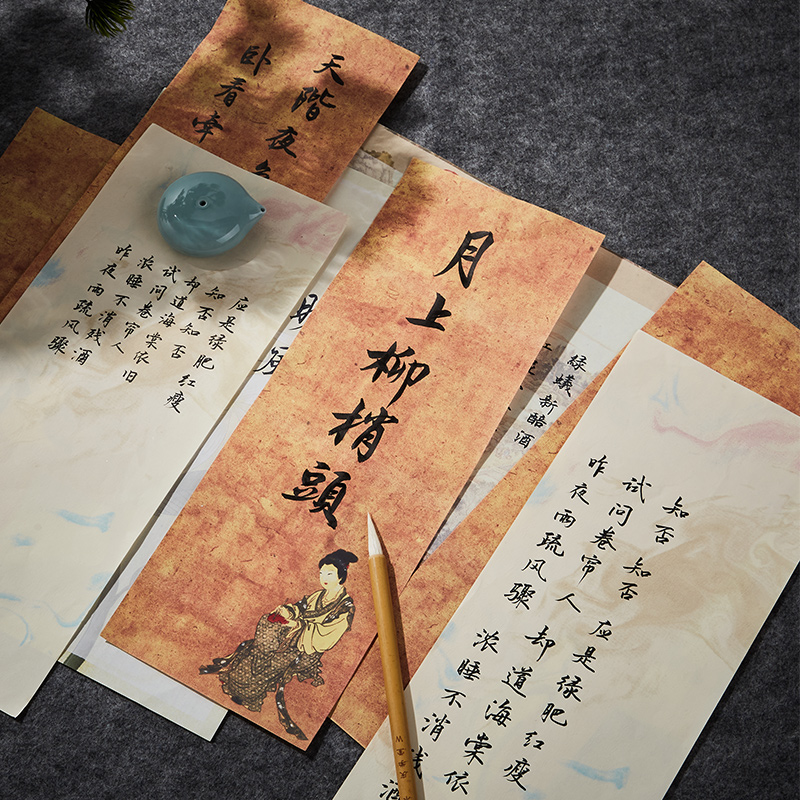 天階夜
卧看牵
应是绿肥红瘦
知否知否
却道海棠依旧
试问卷帘人
浓睡不消残酒
昨夜雨疏风骤
月上柳梢頭
緑蟻新醅酒
知否知否应是绿肥红瘦
试问卷帘人却道海棠依
昨夜雨疏风骤浓睡不消残酒